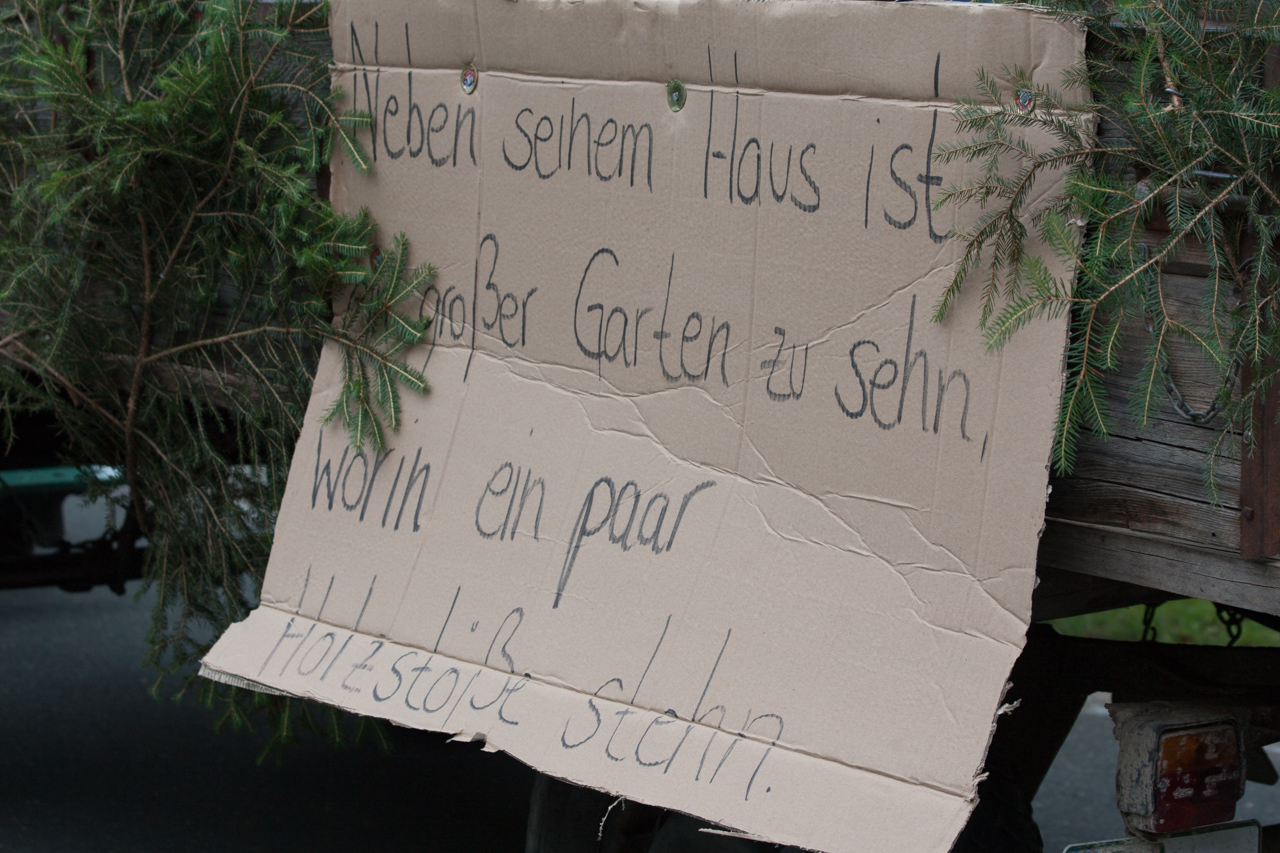 Neben seinem Haus ist
großer Garten zu sehn,
worin ein paar
Holzstöße stehn.